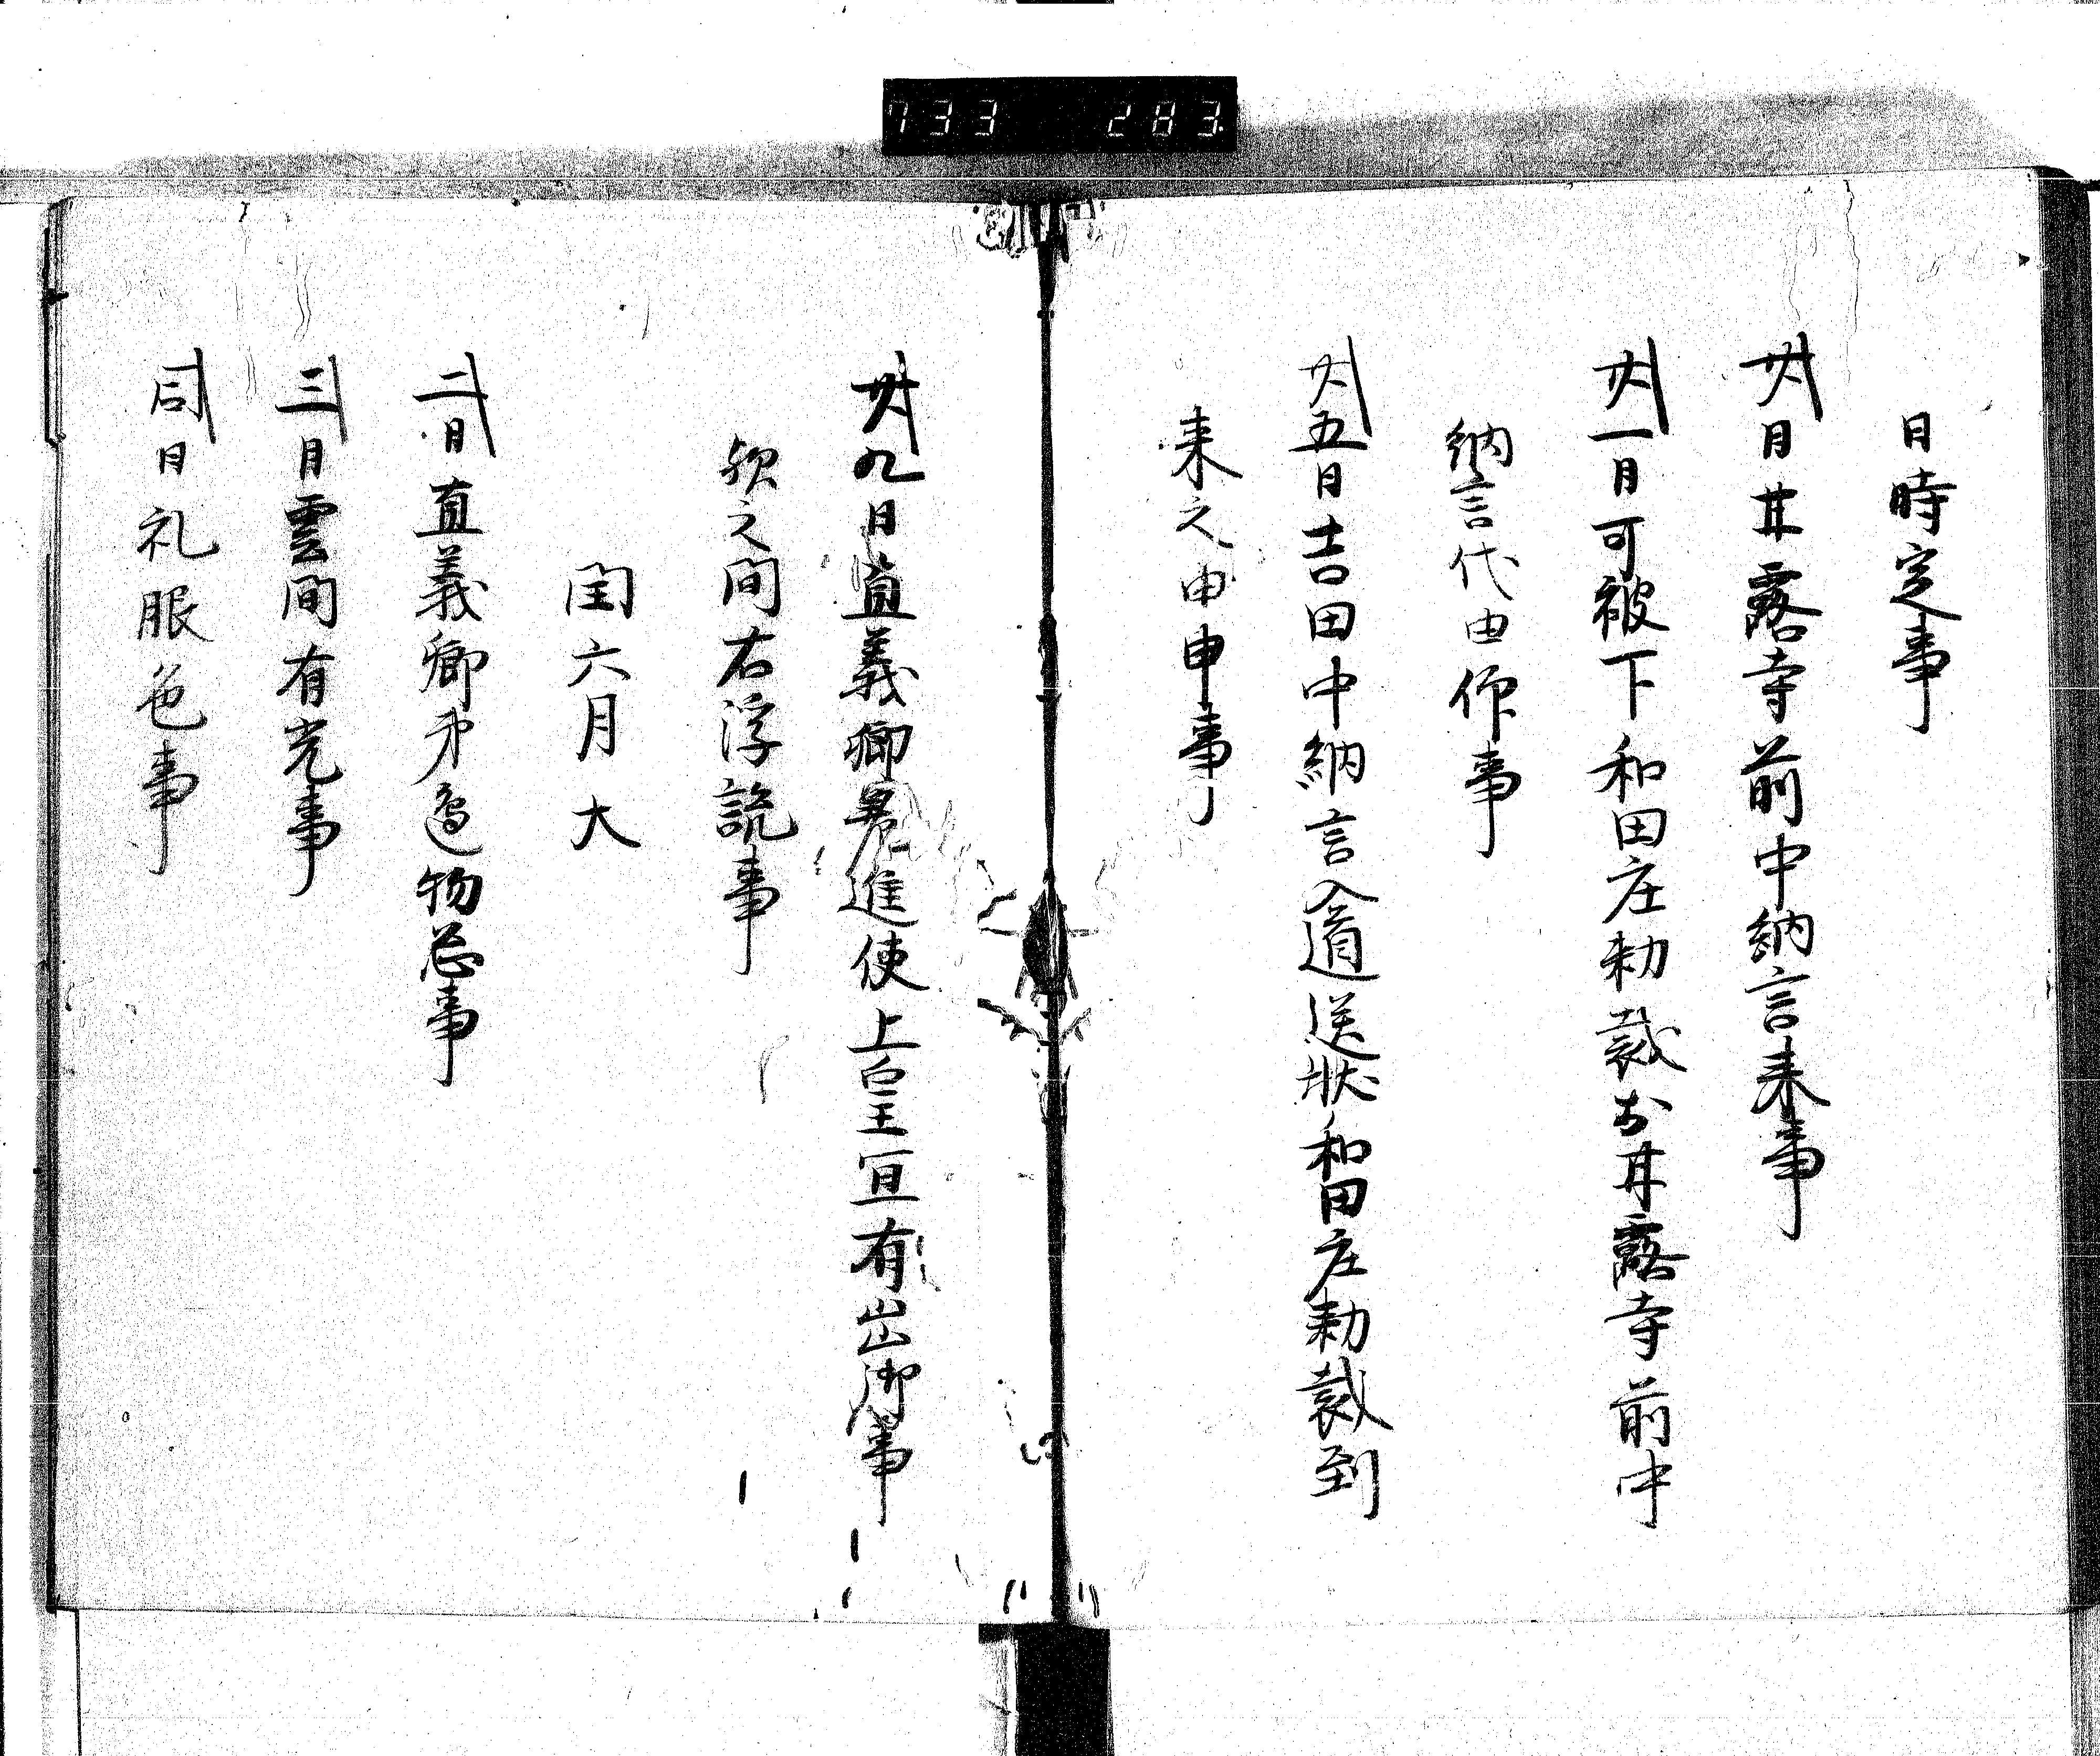 733 283
日時定事
廿日甘露寺前中納言来事
廿一日可被下和田庄勅裁於甘露寺前中
納言代由仰事
廿五日吉田中納言入道送状和田庄勅裁到
来之由申事
廿九日直義卿 進使上皇宜有出御事
歟之間右浮説事
閏六月大
二日直義卿 辺物忩事
三日雲間有光事
同日礼服色事